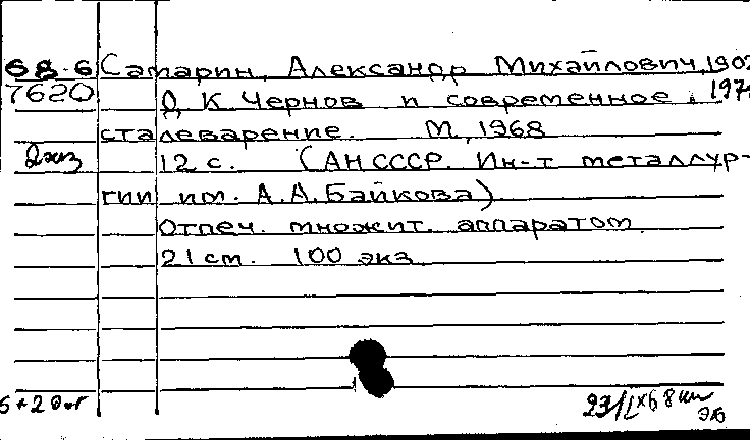 68-6 Самарин, Александр Михайлович, 1902
7620 Д. К. Чернов и современное 197
сталеварение. М., 1968
2экз 12 с. (АН СССР. Ин-т металлур-
гии им. А.А.Байкова)
Отпеч. множит. аппаратом
21 см. 100 экз.